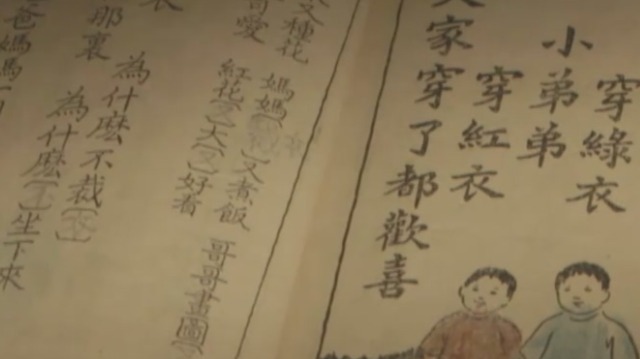 穿綠衣
小弟弟
穿紅衣
大家穿了都歡喜
又種花
可愛
媽媽〔〕又煮飯
紅花〔〕大〔又〕好看
哥哥畫圖〔〕
衣
那裏
為什麼不裁〔衣〕
為什麼〔〕坐下來
爸媽媽